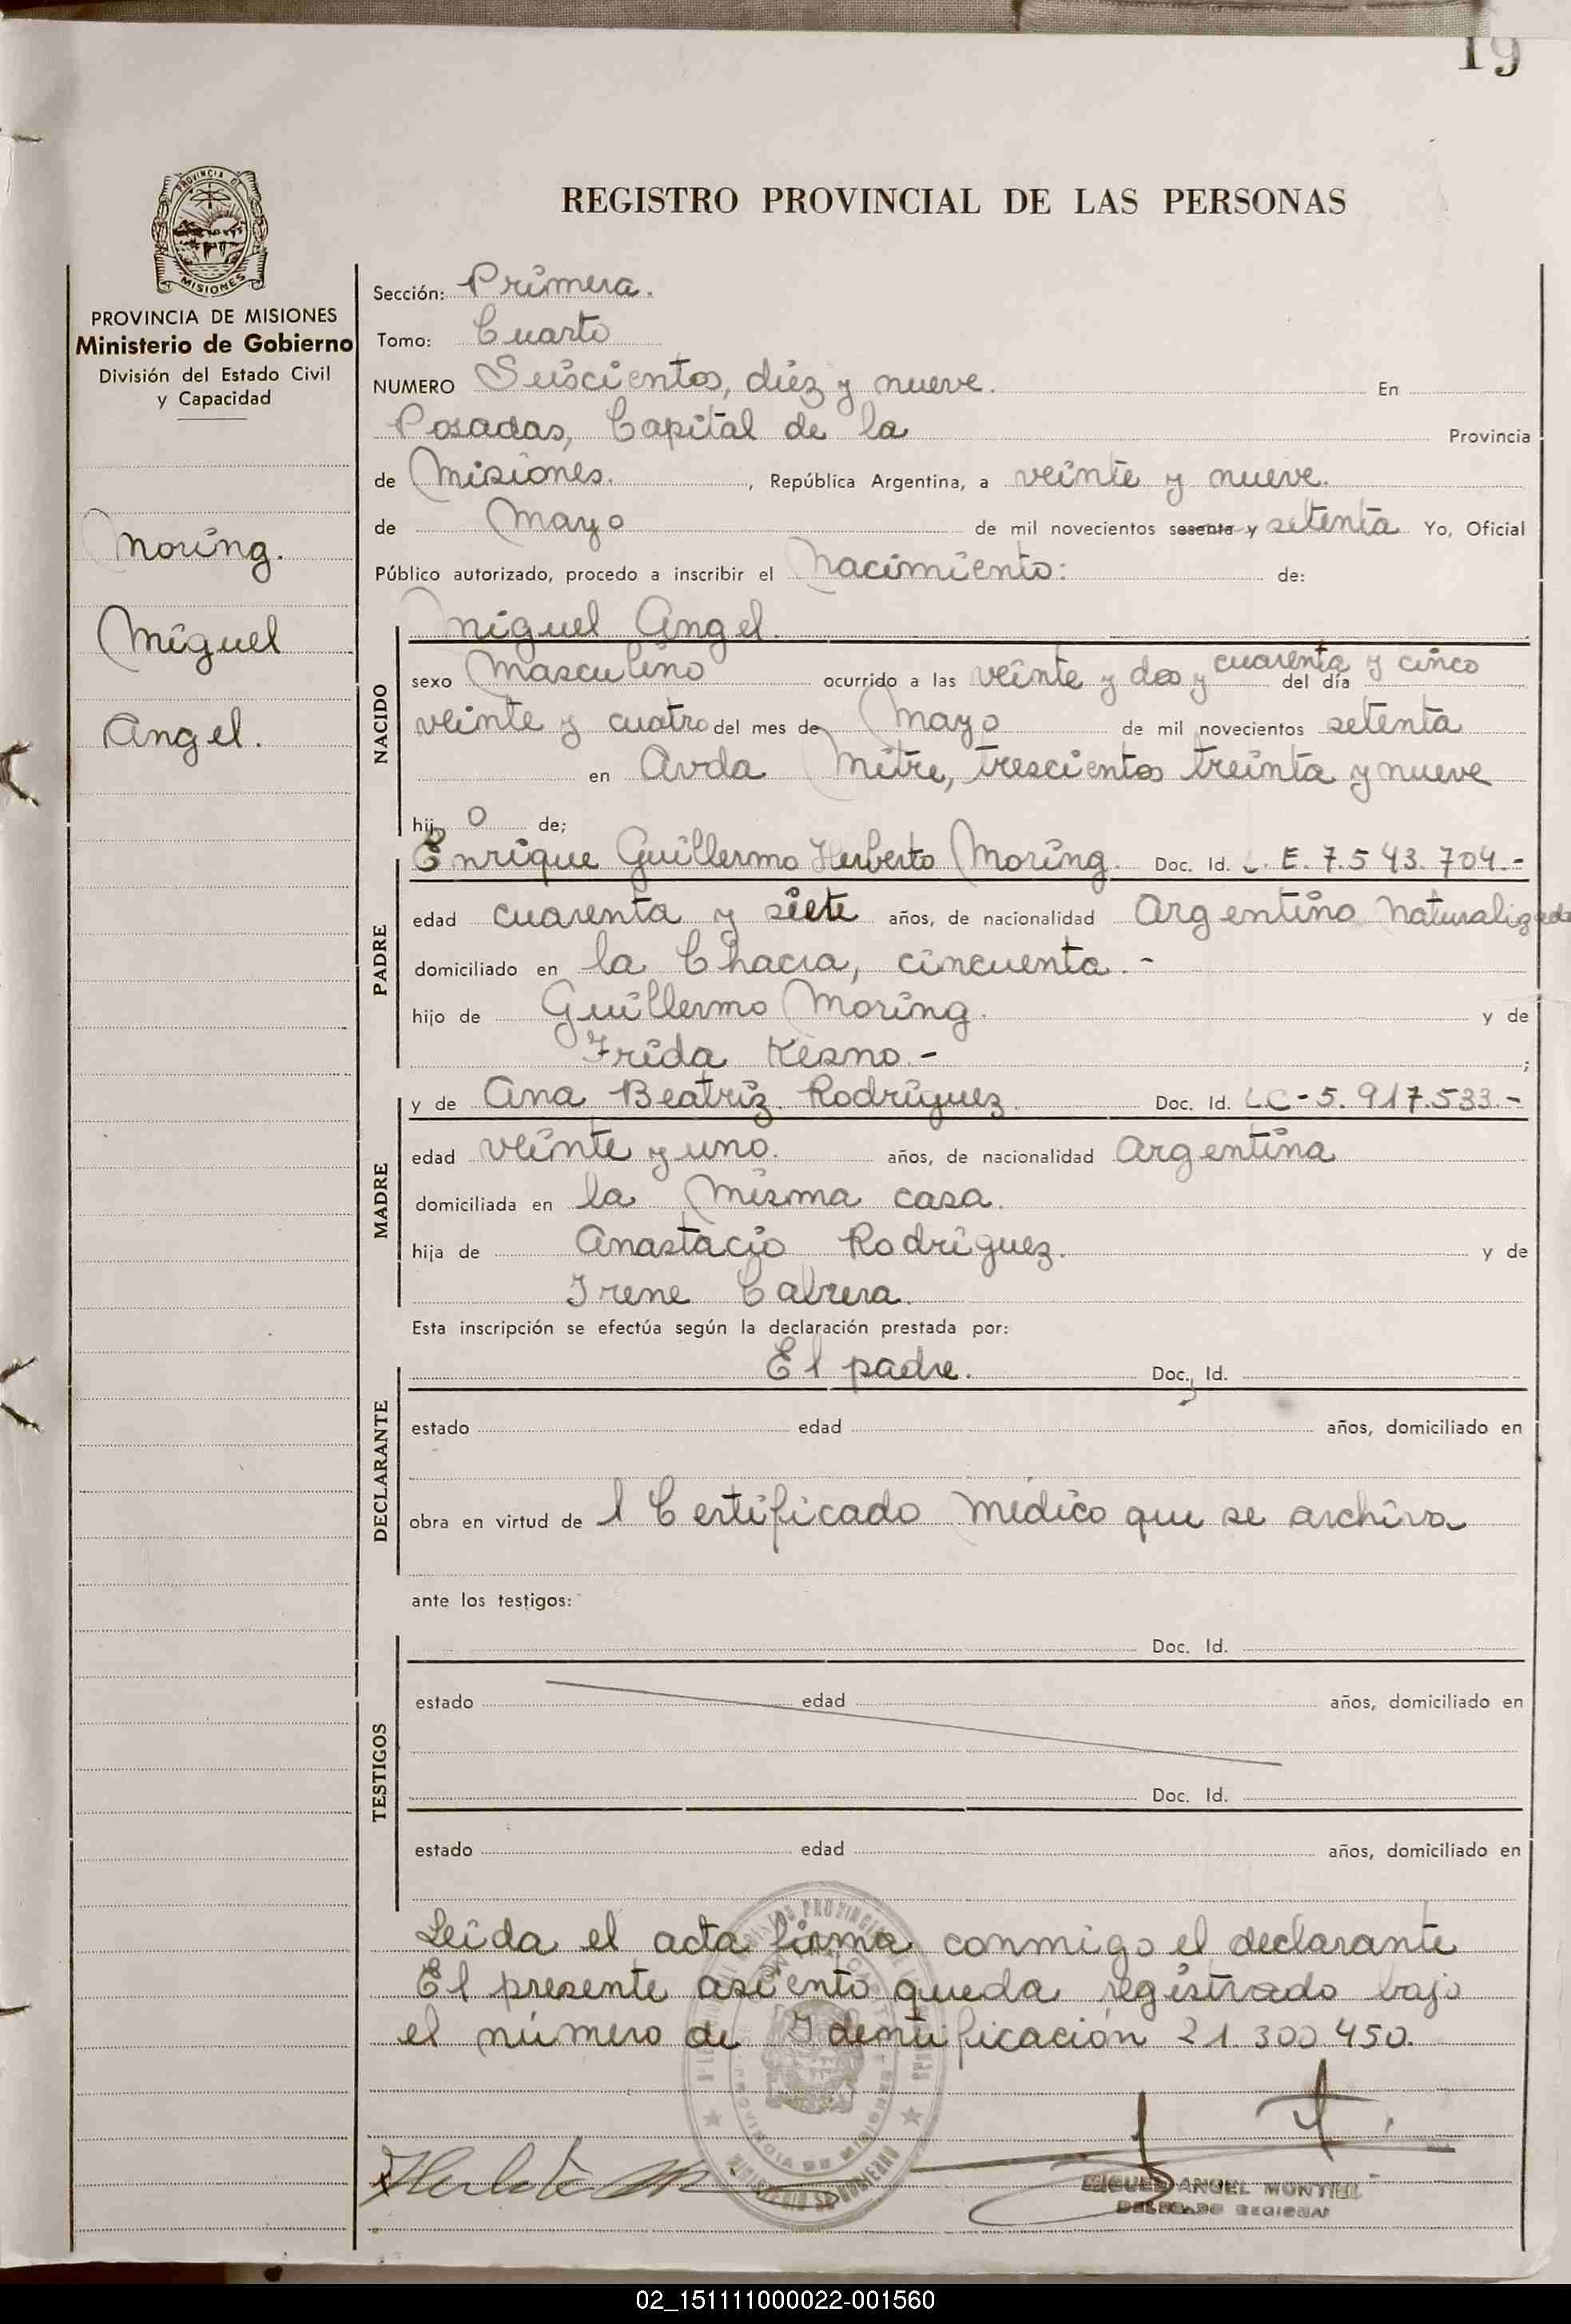 19
PROVINCIA DE
MISIONES
PROVINCIA DE MISIONES
Ministerio de Gobierno
División del Estado Civil
y Capacidad
Moring.
Miguel
Angel.
REGISTRO PROVINCIAL DE LAS PERSONAS
Sección: Primera.
Tomo: Cuarto
NUMERO Seiscientos, diez y nueve. En
Posadas, Capital de la Provincia
de Misiones. , República Argentina, a veinte y nueve.
de Mayo de mil novecientos sesenta y setenta Yo, Oficial
Público autorizado, procedo a inscribir el Nacimiento: de:
NACIDO
Miguel Angel.
sexo Masculino ocurrido a las veinte y dos y cuarenta y cinco del día
veinte y cuatro del mes de Mayo de mil novecientos setenta
en Avda Mitre, trescientos treinta y nueve
hij o de;
PADRE
Enrique Guillermo Herberto Moring. Doc. Id. L. E. 7.543.704.-
edad cuarenta y siete años, de nacionalidad Argentino Naturalizado
domiciliado en la Chacra, cincuenta.-
hijo de Guillermo Moring. y de
Frida Kesno.- ;
MADRE
y de Ana Beatriz Rodríguez. Doc. Id. LC-5.917.533.-
edad veinte y uno. años, de nacionalidad Argentina
domiciliada en la Misma casa.
hija de Anastacio Rodríguez. y de
Irene Cabrera.
Esta inscripción se efectúa según la declaración prestada por:
DECLARANTE
El padre. Doc. Id.
estado edad años, domiciliado en
obra en virtud de l Certificado Médico que se archiva
ante los testigos:
TESTIGOS
Doc. Id.
estado edad años, domiciliado en
Doc. Id.
estado edad años, domiciliado en
Leída el acta firma conmigo el declarante
El presente asiento queda registrado bajo
el número de Identificación 21.300.450.
MIGUEL ANGEL MONTIEL
DELEGADO REGIONAL
PROVINCIA DE MISIONES
MINISTERIO DE GOBIERNO
02_151111000022-001560